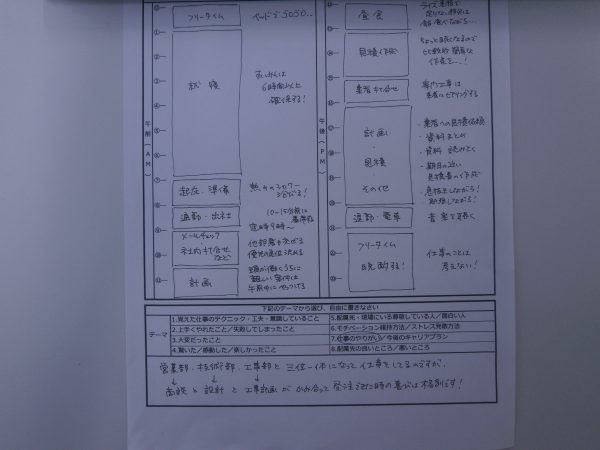 フリータイム
ベッドでSNS...
就寝
すいみんは
6時間以上
確保する!
午前(AM)
起床・準備
熱々のシャワー
通勤・出社
10~15分前に
定時9時~
メールチェック
社内打合せ
など
他部署と交ぜる
優先順位決める
計画
頭が働くうちに
難しい案件は
午前中にやっつける
昼食
見積作成
ちょっと眠くなるので
比較的簡単な
作業を…!
業者打合せ
専門工事は
業者にヒアリングする
午後(PM)
計画
・
見積
・
その他
・業者への見積依頼
・資料まとめ
・資料読みとく
・期日の近い
見積書の作成
・息抜きしながら!
退勤・電車
音楽を聴く
フリータイム
晩酌する!
仕事のことは
考えない!
下記のテーマから選び、自由に書きなさい
テーマ
1.覚えた仕事のテクニック・工夫・意識していること
5.配属先・現場にいる尊敬している人/面白い人
2.上手くやれたこと/失敗してしまったこと
6.モチベーション維持方法/ストレス発散方法
3.大変だったこと
7.仕事のやりがい/今後のキャリアプラン
4.驚いた/感動した/楽しかったこと
8.配属先の良いところ/悪いところ
営業部・技術部・工事部と三位一体になって仕事をしてるのですが、
↓ ↓ ↓
商談と設計と工事計画がかみ合って受注できた時の喜びは格別です!